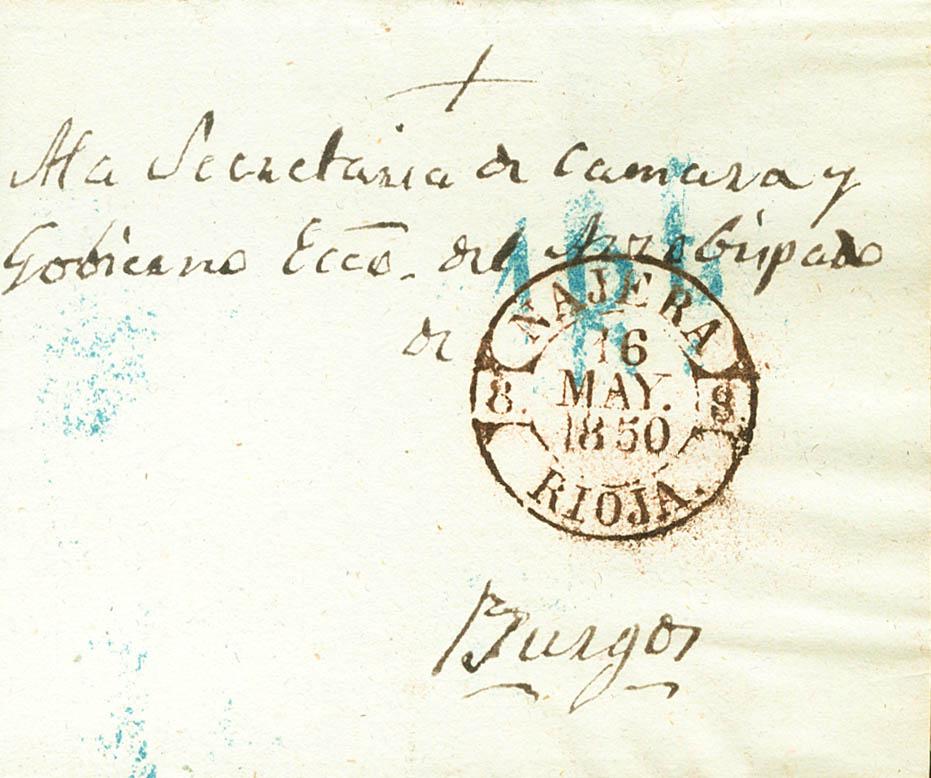 +
A la Secretaria de Camara y
Gobierno Ecco. del Arzobispado
de
NAJERA
16
8. MAY. 8.
1850
RIOJA.
Burgos